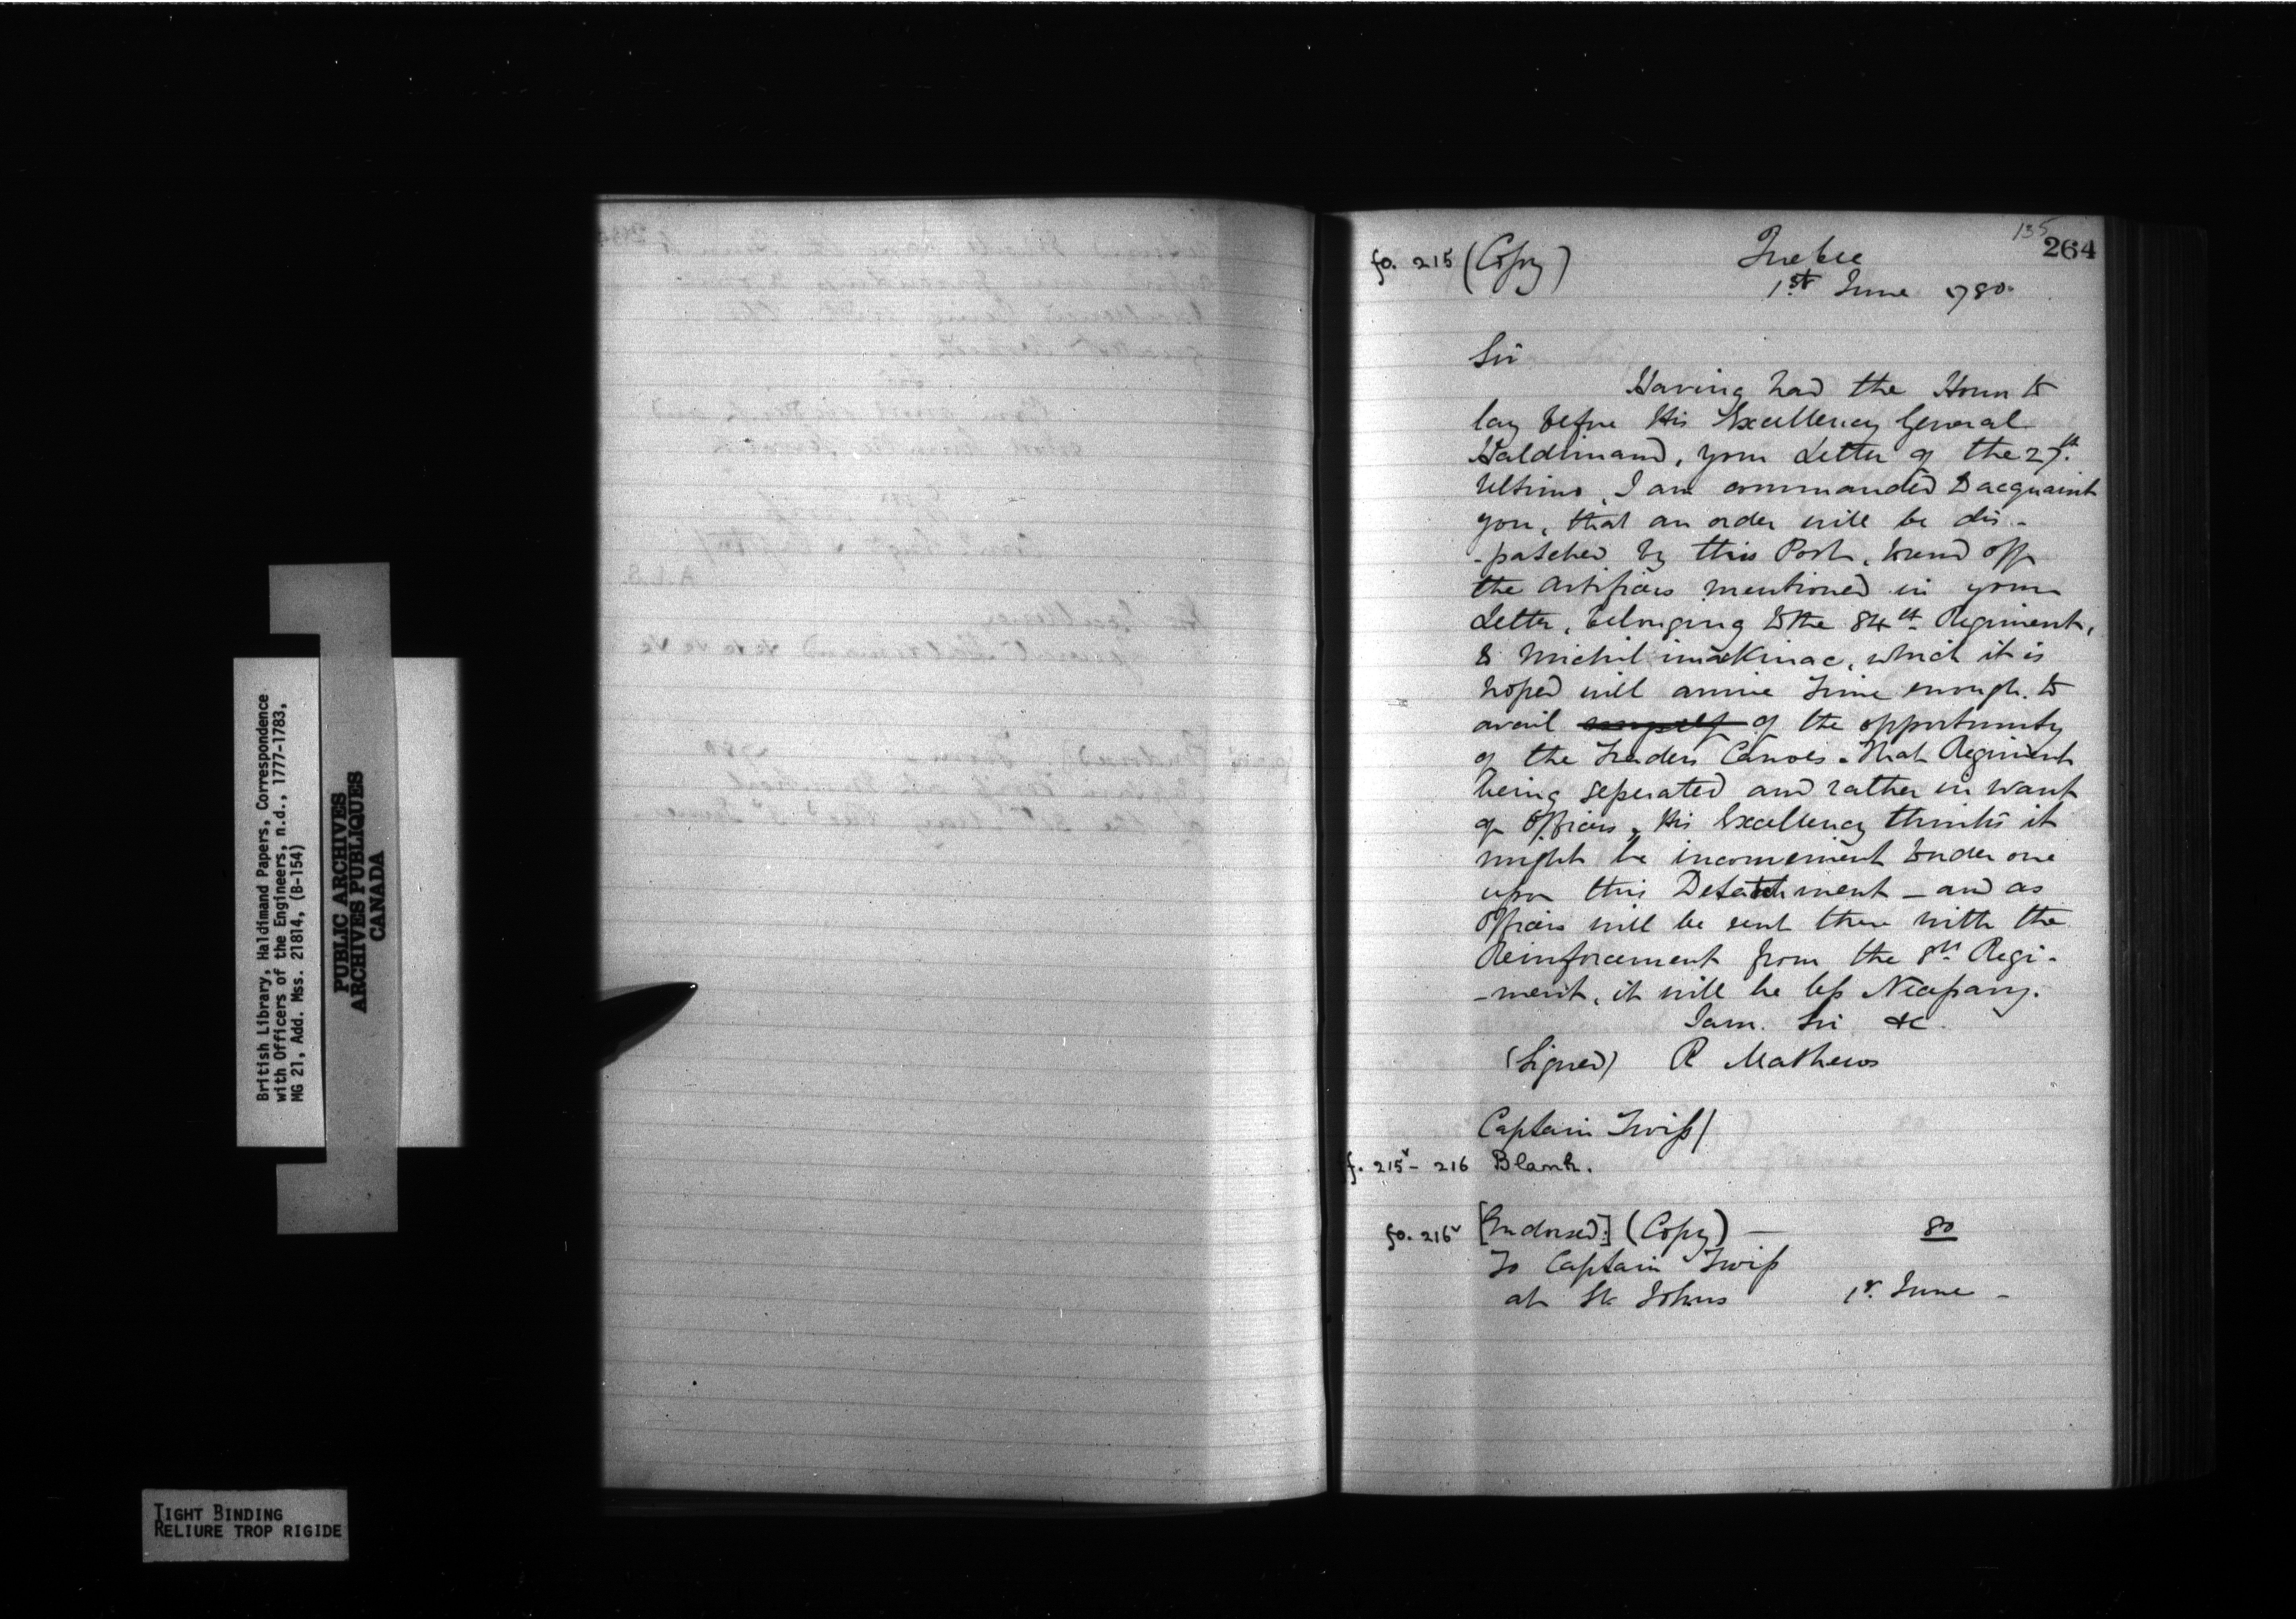 British Library, Haldimand Papers, Correspondence
with Officers of the Engineers, n.d., 1777-1783,
MG 21, Add. Mss. 21814, (B-154)
PUBLIC ARCHIVES
ARCHIVES PUBLIQUES
CANADA
TIGHT BINDING
RELIURE TROP RIGIDE
135
264
fo. 215 (Copy) Quebec
1st June 1780.
Sir
Having had the Honor to
lay before His Excellency General
Haldimand, your Letter of the 27th.
Ultimo, I am commanded to acquaint
you, that an order will be dis-
-patched by this Post, to send off
the Artificers mentioned in your
Letter, belonging to the 84th Regiment,
to Michilimackinac, which it is
hoped will arrive time enough to
avail myself of the opportunity
of the Traders Canoes. That Regiment
being seperated and rather in want
of Officers, His Excellency thinks it
might be inconvenient to order one
upon this Detatchment - and as
Officers will be sent there with the
Reinforcement from the 8th Regi-
-ment, it will be less Necessary.
I am. Sir &c.
(Signed) R Mathews
Captain Twiss/
f. 215v - 216 Blank.
fo. 216v [Endorsed.] (Copy) — 80
To Captain Twiss
at St. Johns 1st. June -